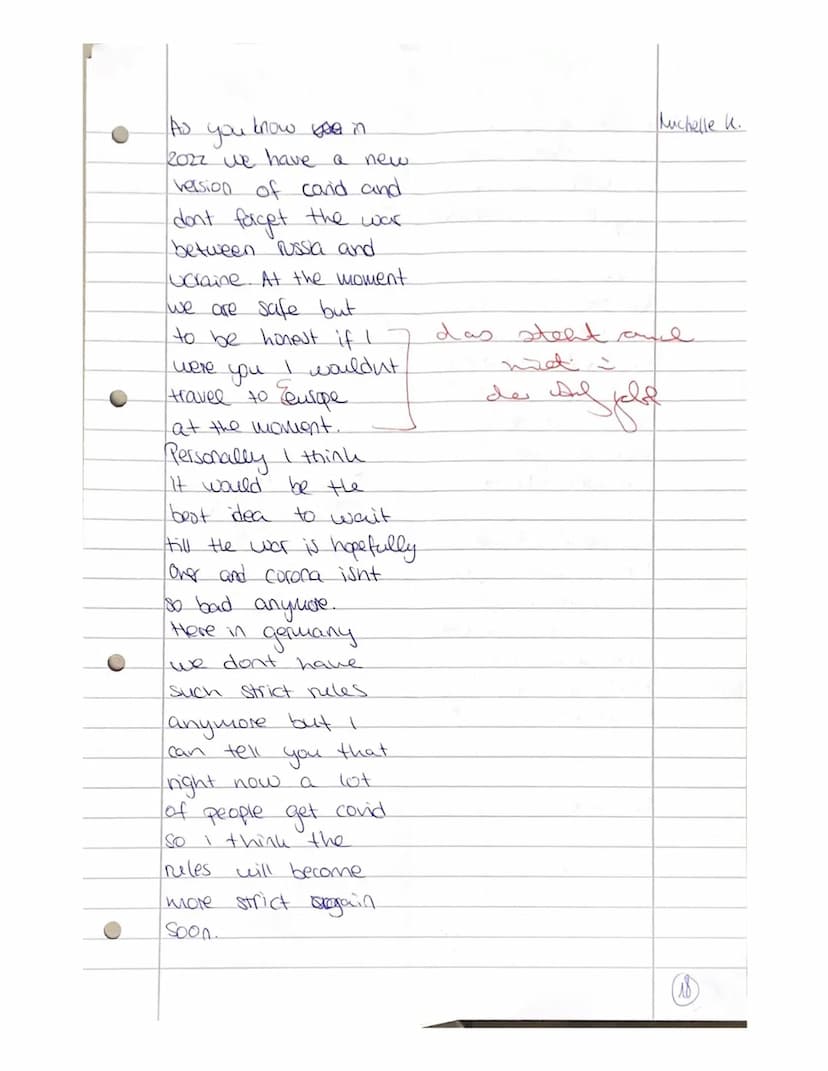 Michelle K.
As you know in
2022 we have a new
version of covid and
dont forget the war
between Russa and
ucraine. At the moment
we are safe but
to be honest if I
were you I wouldnt
travel to Europe
at the moment.
das steht auch
nicht in
der
Personally I think
It would be the
best idea to wait
till the war is hopefully
Over and corona isnt
so bad anymore.
Here in germany
we dont have
such strict rules
anymore but I
can tell you that
right now a lot
of people get covid
so i think the
rules will become
more strict again
Soon.
18